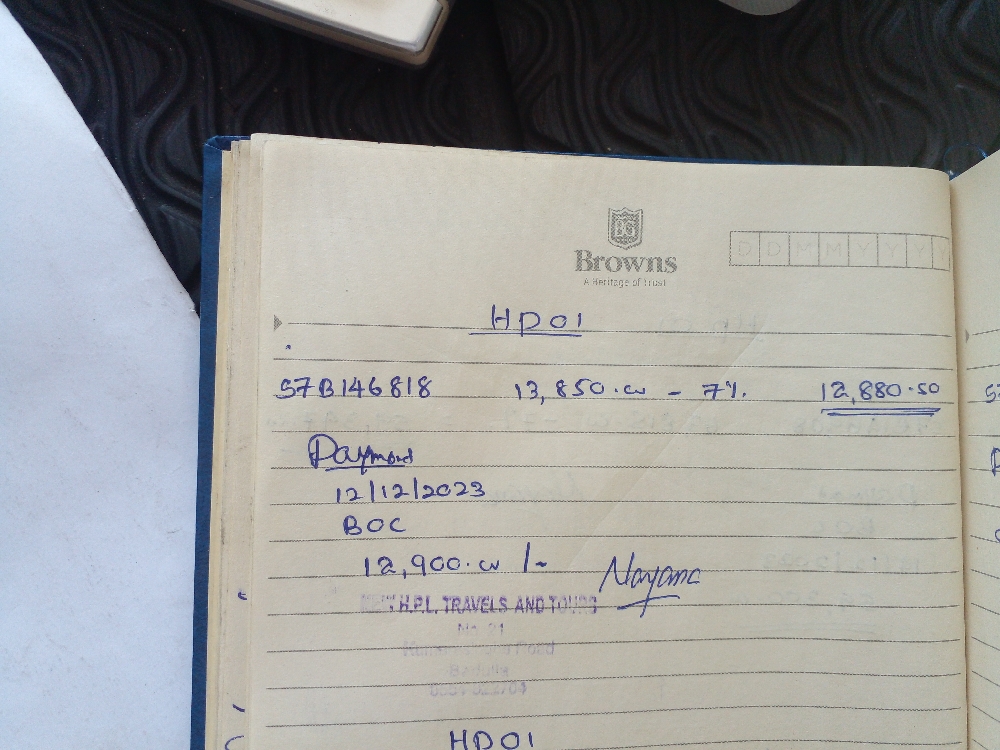 Browns
A Heritage of Trust
HP01
S7B146818 13,850.00 - 7% 12,880.50
Payment
12/12/2023
BOC
12,900.00 /-
Nayana
H.P.L. TRAVELS AND TOURS
No. 21
Road
HP01